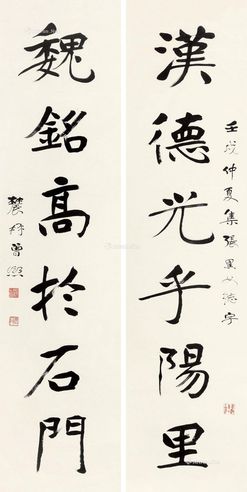 漢德光乎陽里
壬戌仲夏集張黑女誌字
魏銘高於石門
農髯曾熙